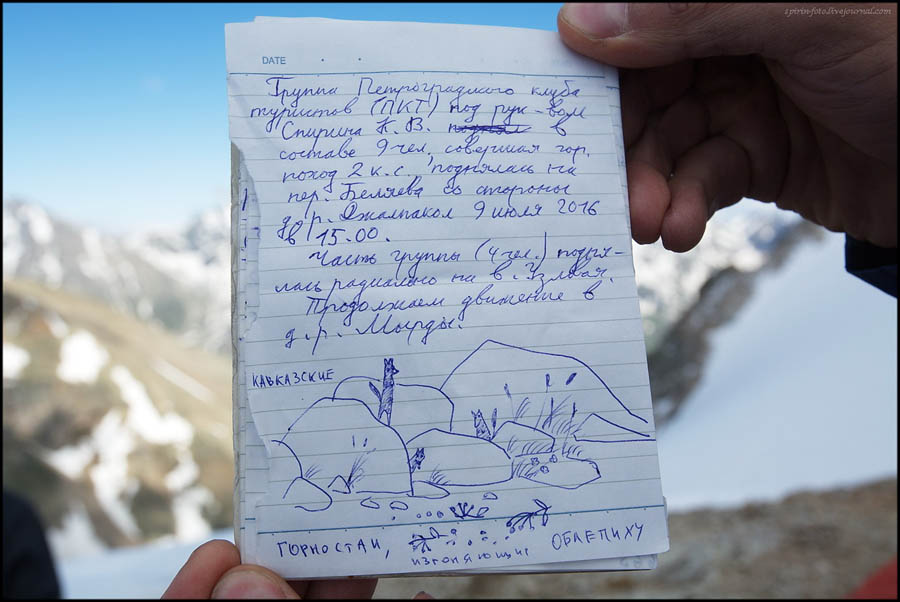 spirinfoto.livejournal.com
DATE
Группа Петроградского клуба
туристов (ПКТ) под рук-вом
Спирина К.В. в
составе 9 чел., совершая гор.
поход 2 к.с., поднялась на
пер. Беляева со стороны
д.р. Джалпакол 9 июля 2016
в 15.00.
Часть группы (4 чел.) подня-
лась радиально на в. Узловая.
Продолжаем движение в
д.р. Мырды.
КАВКАЗСКИЕ
ГОРНОСТАИ,
изгоняющие
ОБЛЕПИХУ